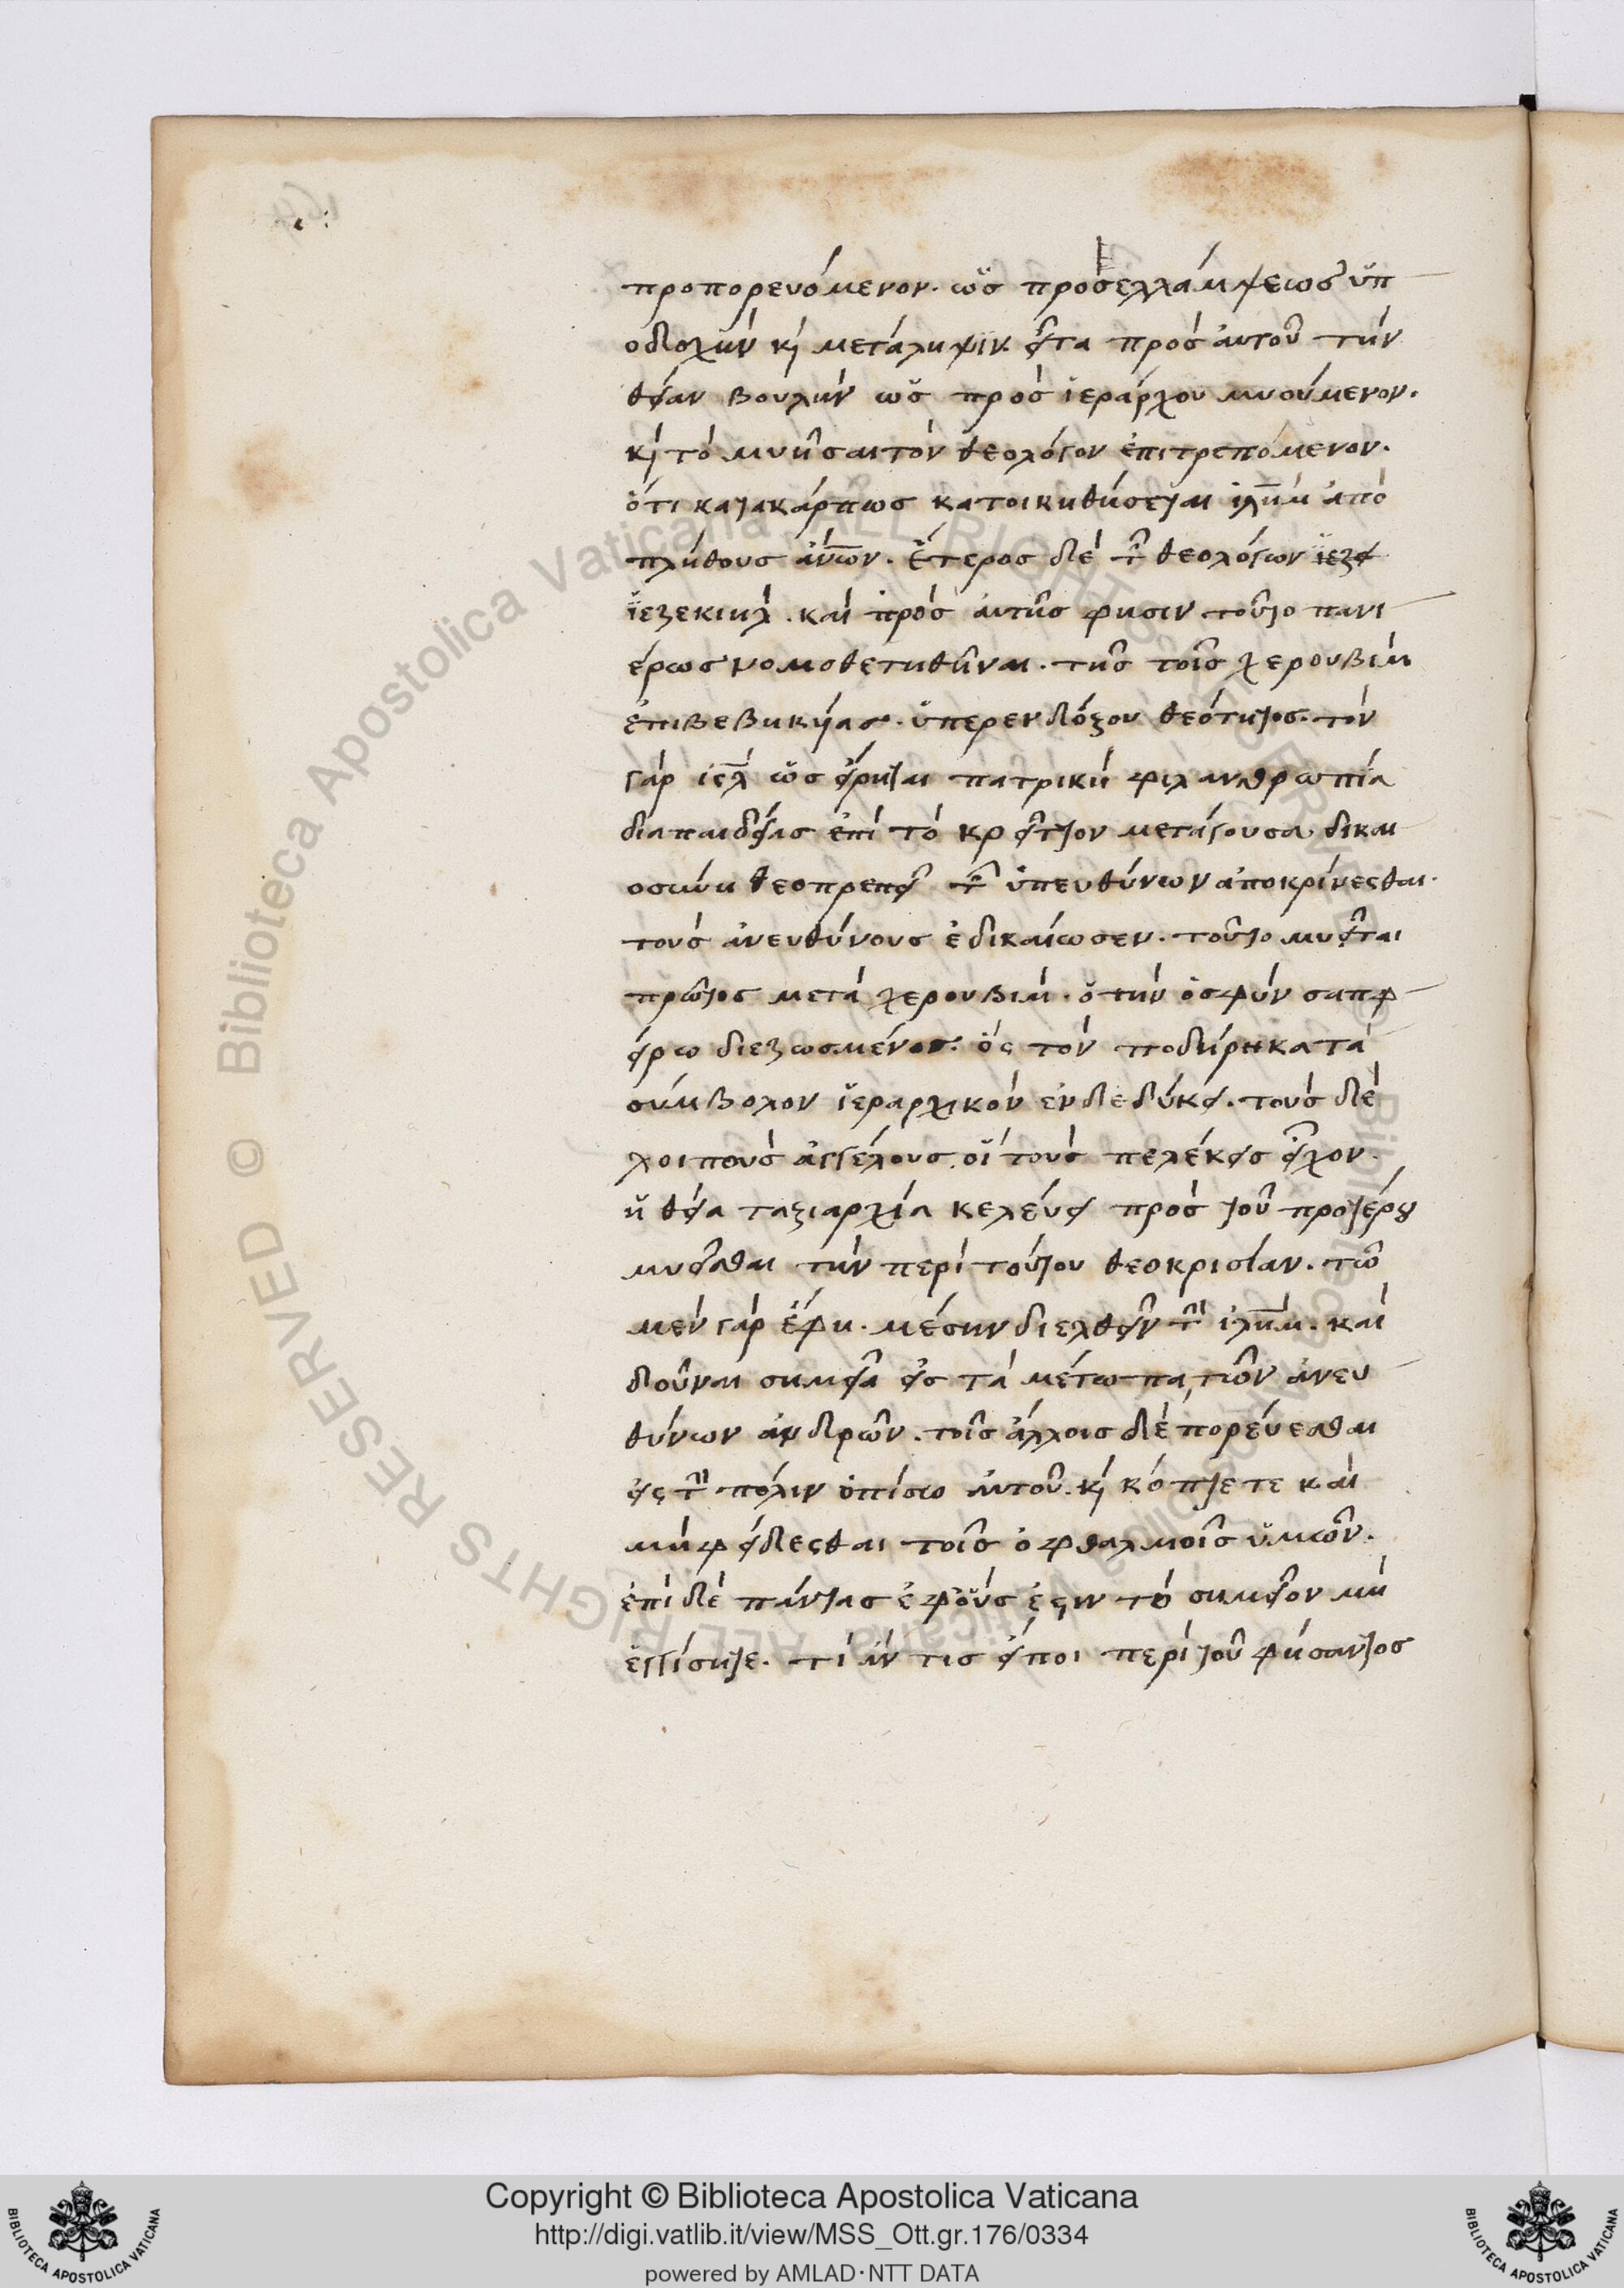 προπορευόμενον. ὡς πρὸς ἐλλάμψεως ὑπ
οδοχὴν κὶ μετάληψιν. εἶτα πρὸς αὐτοῦ τὴν
θείαν βουλὴν ὡς πρὸς ἱεράρχου μυούμενον.
κὶ τὸ μυῆσαι τὸν θεολόγον ἐπιτρεπόμενον.
ὅτι κατακάρπως κατοικηθήσεται ἰλὴμ ἀπὸ
πλήθους ἀνῶν. ἕτερος δὲ τ̑ θεολόγων ἰεζε
ἰεζεκιὴλ. καὶ πρὸς αὐτῆς φησιν τοῦτο πανι
έρως νομοθετηθῆναι. τῆς τοῖς χερουβὶμ
ἐπιβεβηκείας. ὑπερενδόξου θεότητος. τὸν
γὰρ ἰσλ ὡς εἴρηται πατρικῆ φιλανθρωπία
διαπαιδείας ἐπὶ τὸ κρεῖττον μετάγουσα δικαι
οσύνη θεοπρεπεῖ τ̑ ὑπευθύνων ἀποκρίνεσθαι.
τοὺς ἀνευθύνους ἐδικαίωσεν. τοῦτο μυεῖται
πρῶτος μετὰ χερουβὶμ. ὁ τὴν ὀσφὺν σαπφ
είρω διεζωσμένος. ὃς τὸν ποδήρη κατὰ
σύμβολον ἱεραρχικὸν ἐνδεδύκει. τοὺς δὲ
λοιποὺς ἀγγέλους. οἳ τοὺς πελέκεις εἶχον.
ἡ θεία ταξιαρχία κελεύει πρὸς τοῦ προτέρου
μυεῖσθαι τὴν περὶ τούτου θεοκρισίαν. τῶ
μὲν γὰρ ἔφη. μέσην διελθεῖν τ̀ ἰλὴμ. καὶ
δοῦναι σημεῖα εἰς τὰ μέτωπα, τῶν ἀνευ
θύνων ἀνδρῶν. τοῖς ἄλλοις δὲ πορεύεσθαι
εἰς τ̀ πόλιν ὀπίσω αὐτοῦ. κὶ κόπτετε καὶ
μὴ φείδεσθαι τοῖς ὀφθαλμοῖς ὑμῶν.
ἐπὶ δὲ πάντας ἐφ οὕς ἐστιν τὸ σημεῖον μὴ
ἐγγίσητε. τί ἄν τις εἴποι περὶ τοῦ φήσαντος
Copyright © Biblioteca Apostolica Vaticana
http://digi.vatlib.it/view/MSS_Ott.gr.176/0334
powered by AMLAD·NTT DATA